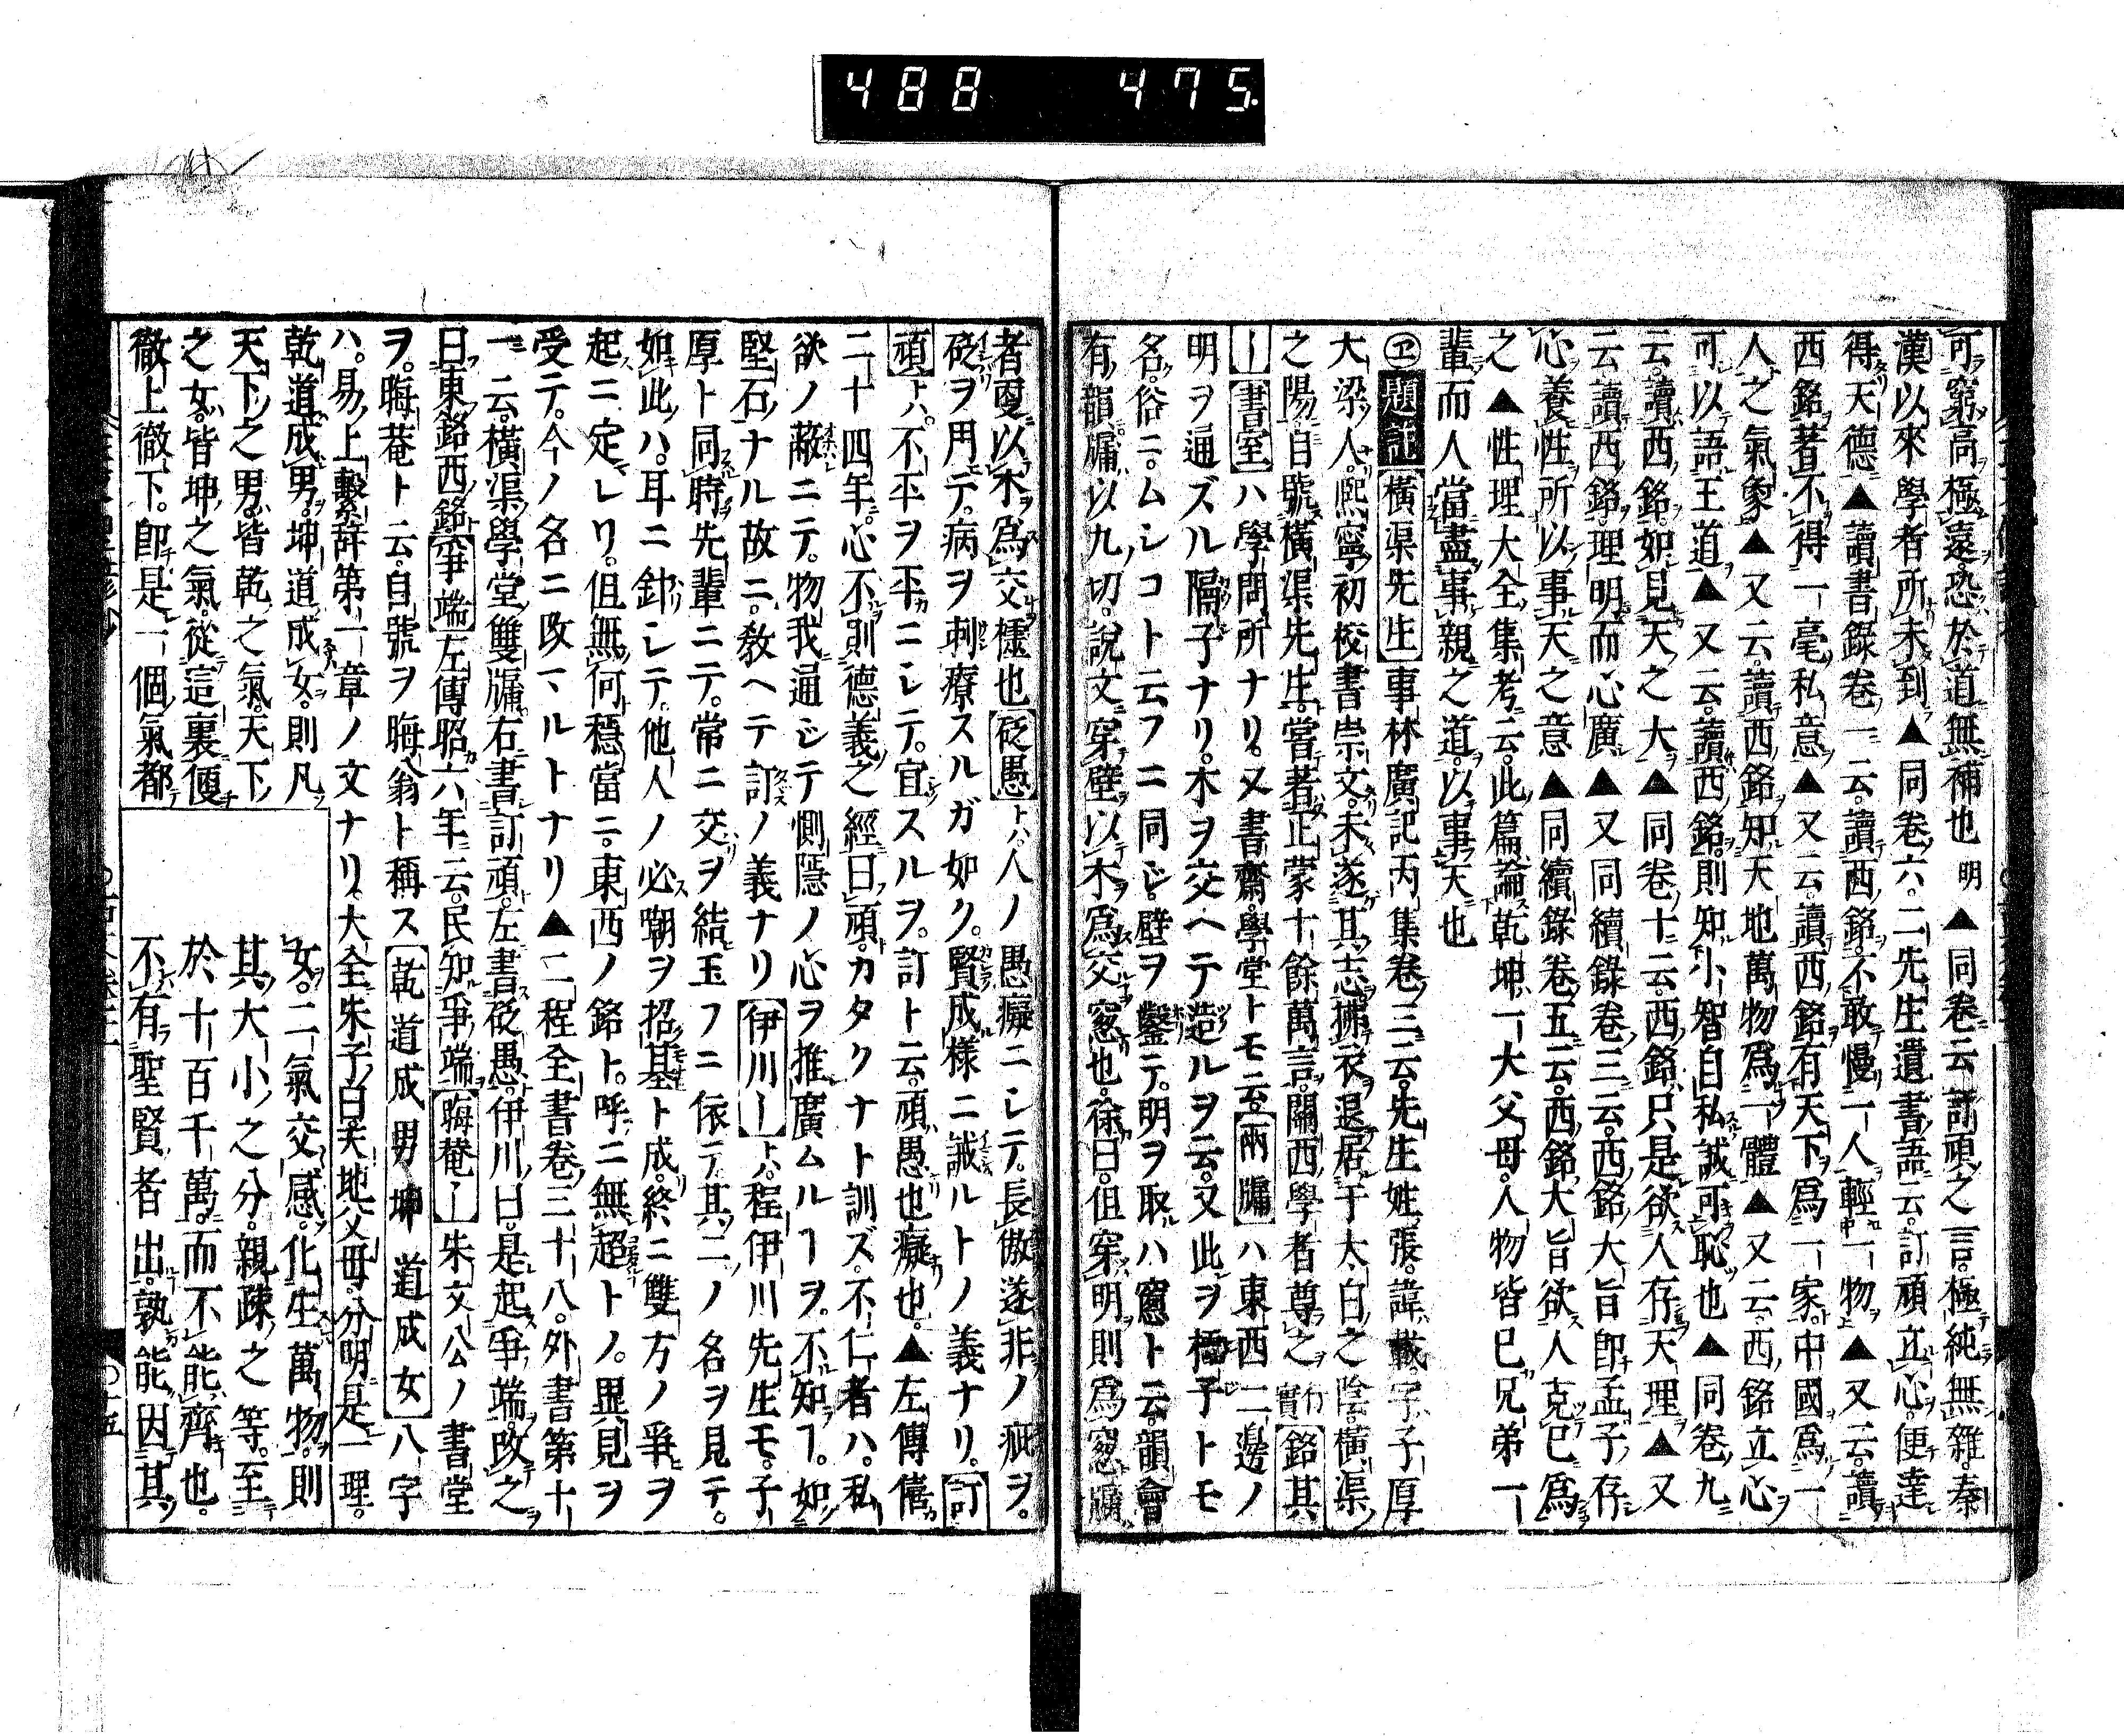 488 475
可窮高極遠恐於道無補也 明 ▲同卷云訂頑之言極純無雜秦
漢以來學者所未到▲同卷六二先生遺書語云訂頑立心便達
得天德▲讀書錄卷一云讀西銘不敢慢一人輕一物▲又云讀
西銘者不得一毫私意▲又云讀西銘有天下爲一家中國爲一
人之氣象▲又云讀西銘知天地萬物爲一體▲又云西銘立心
可以語王道▲又云讀西銘則知小智自私誠可恥也▲同卷九
云讀西銘如見天之大▲同卷十云西銘只是欲人存天理▲又
云讀西銘理明而心廣▲又同續錄卷三云西銘大旨即孟子存
心養性所以事天之意▲同續錄卷五云西銘大旨欲人克己爲
之▲性理大全集考云此篇論乾坤一大父母人物皆己兄弟一
輩而人當盡事親之道以事天也
㋓題註 橫渠先生 事林廣記丙集卷三云先生姓張諱載字子厚
大梁人熙寧初校書崇文未遂其志拂衣退居于太白之陰橫渠
之陽自號橫渠先生嘗著正蒙十餘萬言關西學者尊之 銘其
｜書室 ハ學問所ナリ又書齋學堂トモ云 兩牖 ハ東西二邊ノ
明ヲ通ズル隔子ナリ木ヲ交ヘテ造ルヲ云又此ヲ櫺子トモ
名俗ニムシコト云フニ同ジ壁ヲ鑿テ明ヲ取ハ窻ト云韻會
有韻牖以九切說文穿壁以木爲交窓也徐曰但穿明則爲窓牖
者更以木爲交櫺也 砭愚 トハ人ノ愚癡ニシテ長傲遂非ノ疵ヲ
砭ヲ用テ病ヲ刺療スルガ如ク賢成樣ニ誡ルトノ義ナリ 訂
頑 トハ不平ヲ平ニシテ宜スルヲ訂ト云頑愚也癡也▲左傳僖
二十四年心不則德義之經曰頑カタクナト訓ズ不仁者ハ私
欲ノ蔽ニテ物我通ジテ惻隱ノ心ヲ推廣ムルヿヲ不知ヿ如
堅石ナル故ニ敎ヘテ訂ノ義ナリ 伊川｜ トハ程伊川先生モ子
厚ト同時先輩ニテ常ニ交ヲ結玉フニ依テ其二ノ名ヲ見テ
如此ハ耳ニ針シテ他人ノ必嘲ヲ招基ト成終ニ雙方ノ爭ヲ
起ニ定レリ但無何穩當ニ東西ノ銘ト呼ニ無超トノ異見ヲ
受テ今ノ名ニ改ヽルトナリ▲二程全書卷三十八外書第十
一云橫渠學堂雙牖右書訂頑左書砭愚伊川曰是起爭端改之
曰東銘西銘 爭端 左傳昭六年云民知爭端 晦菴｜ 朱文公ノ書堂
ヲ晦菴ト云自號ヲ晦翁ト稱ス 乾道成男坤道成女 八字
ハ易上繫辭第一章ノ文ナリ大全朱子曰天地父母分明是一理
乾道成男坤道成女則凡
天下之男皆乾之氣天下
之女皆坤之氣從這裏便
徹上徹下即是一個氣都
女二氣交感化生萬物則
其大小之分親疎之等至
於十百千萬而不能齊也
不有聖賢者出孰能因其